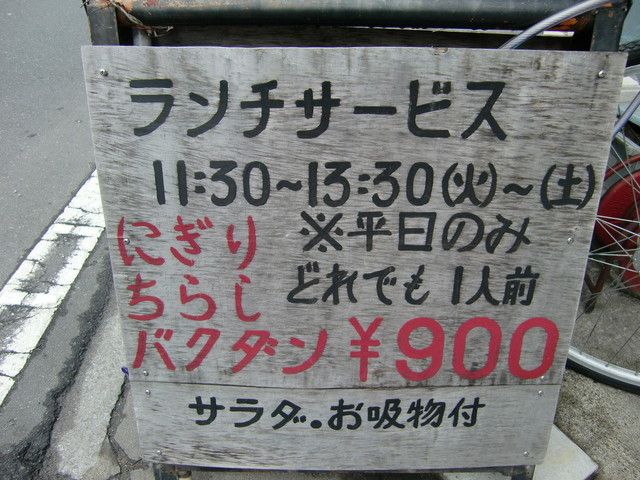 ランチサービス
11:30~13:30(火)~(土)
※平日のみ
にぎり
ちらし
バクダン
どれでも 1人前
¥900
サラダ。お吸物付